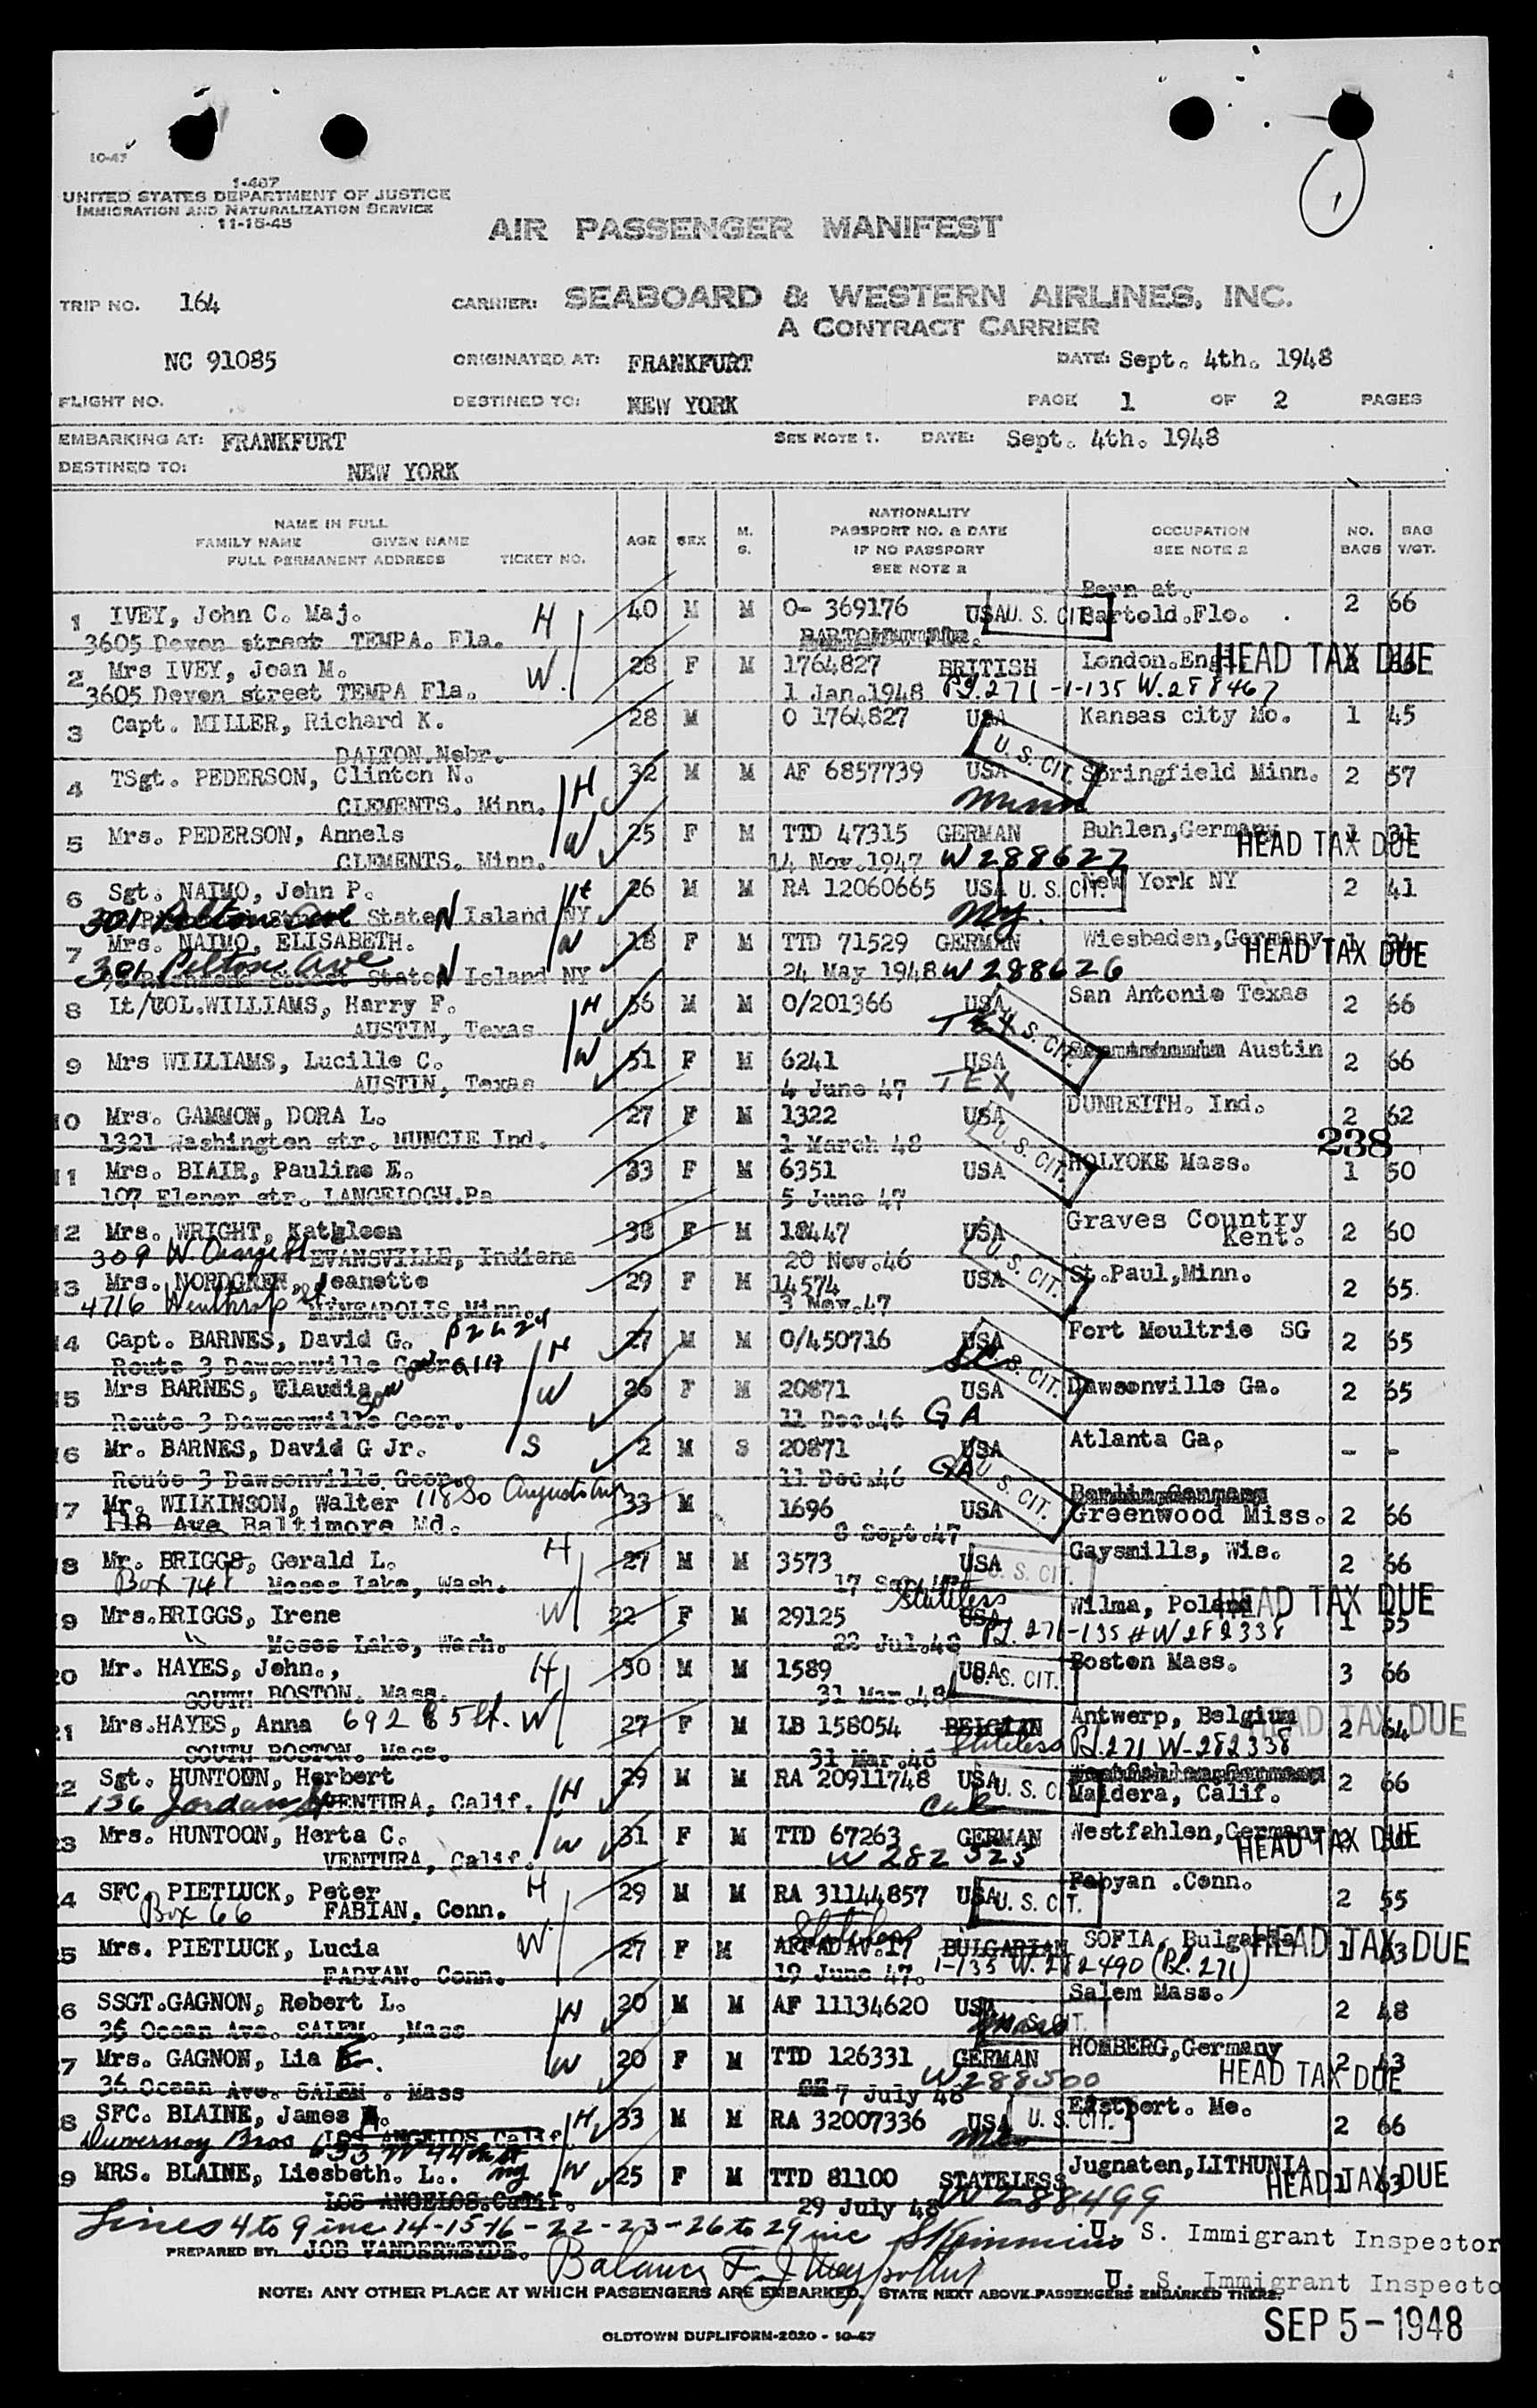 10-47
1-467
UNITED STATES DEPARTMENT OF JUSTICE
IMMIGRATION AND NATURALIZATION SERVICE
11-15-45
1
AIR PASSENGER MANIFEST
TRIP NO. 164 CARRIER: SEABOARD & WESTERN AIRLINES, INC.
A CONTRACT CARRIER
NC 91085 ORIGINATED AT: FRANKFURT DATE: Sept. 4th. 1948
FLIGHT NO. DESTINED TO: NEW YORK PAGE 1 OF 2 PAGES
EMBARKING AT: FRANKFURT SEE NOTE 1. DATE: Sept. 4th. 1948
DESTINED TO: NEW YORK
NAME IN FULL
FAMILY NAME GIVEN NAME
FULL PERMANENT ADDRESS TICKET NO. AGE SEX M. S. NATIONALITY PASSPORT NO. & DATE IF NO PASSPORT SEE NOTE 2 OCCUPATION SEE NOTE 2 NO. BAGS BAG WGT.
Born at.
1 IVEY, John C. Maj. H 40 M M O- 369176 USA U. S. CIT. Bartold.Flo. 2 66
3605 Devon street TEMPA. Fla.
2 Mrs IVEY, Joan M. W. 28 F M 1764827 BRITISH London.Eng. HEAD TAX DUE
3605 Devon street TEMPA Fla. 1 Jan.1948 P.L.271 -1-135 W.288467
3 Capt. MILLER, Richard K. 28 M O 1764827 USA Kansas city Mo. 1 45
DALTON.Nebr. U. S. CIT.
4 TSgt. PEDERSON, Clinton N. H 32 M M AF 6857739 USA Springfield Minn. 2 57
CLEMENTS. Minn. Minn
5 Mrs. PEDERSON, Annels W 25 F M TTD 47315 GERMAN Buhlen,Germany 1 31 HEAD TAX DUE
CLEMENTS. Minn. 14 Nov.1947 W288627
6 Sgt. NAIMO, John P. H 26 M M RA 12060665 USA U. S. CIT. New York NY 2 41
301 Pelton Ave Staten Island NY NY.
7 Mrs. NAIMO, ELISABETH. W 18 F M TTD 71529 GERMAN Wiesbaden,Germany 1 HEAD TAX DUE
301 Pelton Ave Staten Island NY 24 May 1948 W288626
8 Lt/COL.WILLIAMS, Harry F. H 56 M M O/201366 USA San Antonio Texas 2 66
AUSTIN, Texas TEX U. S. CIT.
9 Mrs WILLIAMS, Lucille C. W 51 F M 6241 USA Austin 2 66
AUSTIN, Texas 4 June 47 TEX
10 Mrs. GAMMON, DORA L. 27 F M 1322 USA DUNREITH. Ind. 2 62
1321 Washington str. MUNCIE Ind. 1 March 48 U. S. CIT. 238
11 Mrs. BIAIR, Pauline E. 33 F M 6351 USA HOLYOKE Mass. 1 50
107 Elenor str. LANGEIOGH.Pa 5 June 47
12 Mrs. WRIGHT, Kathleen 38 F M 18447 USA Graves Country Kent. 2 60
309 W. Orange St EVANSVILLE, Indiana 20 Nov.46 U. S. CIT.
13 Mrs. NORDGREN, Jeanette 29 F M 14574 USA St.Paul,Minn. 2 65
4716 Winthrop St MINEAPOLIS,Minn. 3 Nov.47
14 Capt. BARNES, David G. H 27 M M O/450716 USA Fort Moultrie SG 2 65
Route 3 Dawsonville Geor. SC U. S. CIT.
15 Mrs BARNES, Claudia W 26 F M 20871 USA Dawsonville Ga. 2 65
Route 3 Dawsonville Geor. 11 Dec.46 GA
16 Mr. BARNES, David G Jr. S 2 M S 20871 USA Atlanta Ga. - -
Route 3 Dawsonville Geor. 11 Dec.46 GA U. S. CIT.
17 Mr. WIIKINSON, Walter 118 So Augusta Ave 33 M 1696 USA Greenwood Miss. 2 66
118 Ave Baltimore Md. 8 Sept.47
18 Mr. BRIGGS, Gerald L. H 27 M M 3573 USA U. S. CIT. Gaysmills, Wis. 2 66
Box 748 Moses Lake, Wash. 17 Sep
19 Mrs.BRIGGS, Irene W 22 F M 29125 Stateless USA Wilma, Poland 1 55 HEAD TAX DUE
" Moses Lake, Wash. 22 Jul.48 P.L. 271-135 #W282338
20 Mr. HAYES, John., H 30 M M 1589 USA U. S. CIT. Boston Mass. 3 66
SOUTH BOSTON. Mass. 31 Mar.48
21 Mrs.HAYES, Anna 692 E 5 St. W 27 F M LB 158054 BELGIAN Antwerp, Belgium 2 64 HEAD TAX DUE
SOUTH BOSTON. Mass. 31 Mar.48 Stateless P.L.271 W-282338
22 Sgt. HUNTOON, Herbert H 29 M M RA 20911748 USA U. S. CIT. Maldera, Calif. 2 66
136 Jordan St VENTURA, Calif. Cal
23 Mrs. HUNTOON, Herta C. W 31 F M TTD 67263 GERMAN Westfahlen,Germany HEAD TAX DUE
VENTURA, Calif. W 282325
24 SFC. PIETLUCK, Peter H 29 M M RA 31144857 USA U. S. CIT. Fabyan .Conn. 2 55
Box 66 FABIAN. Conn.
25 Mrs. PIETLUCK, Lucia W. 27 F M Stateless BULGARIAN SOFIA, Bulgaria 1 HEAD TAX DUE
FABYAN. Conn. 19 June 47. 1-135 W.282490 (P.L. 271)
26 SSGT.GAGNON, Robert L. H 20 M M AF 11134620 USA Salem Mass. 2 48
36 Ocean Ave. SALEM. ,Mass Mass U. S. CIT.
27 Mrs. GAGNON, Lia E. W 20 F M TTD 126331 GERMAN HOMBERG,Germany 2 43 HEAD TAX DUE
36 Ocean Ave. SALEM . Mass 7 July 48 W288500
28 SFC. BLAINE, James H 33 M M RA 32007336 USA U. S. CIT. Eastport. Me. 2 66
Duvernoy Bros LOS ANGELOS Calif Me
29 MRS. BLAINE, Liesbeth. L.. NY W 25 F M TTD 81100 STATELESS Jugnaten,LITHUNIA HEAD TAX DUE
LOS ANGELOS.Calif. 29 July 48 W288499
Lines 4 to 9 inc 14-15-16-22-23-26 to 29 inc U. S. Immigrant Inspector
PREPARED BY: JOB VANDERWEYDE.
Balance U. S. Immigrant Inspecto
NOTE: ANY OTHER PLACE AT WHICH PASSENGERS ARE EMBARKED, STATE NEXT ABOVE PASSENGERS EMBARKED THERE.
SEP 5-1948
OLDTOWN DUPLIFORM-2020 - 10-47